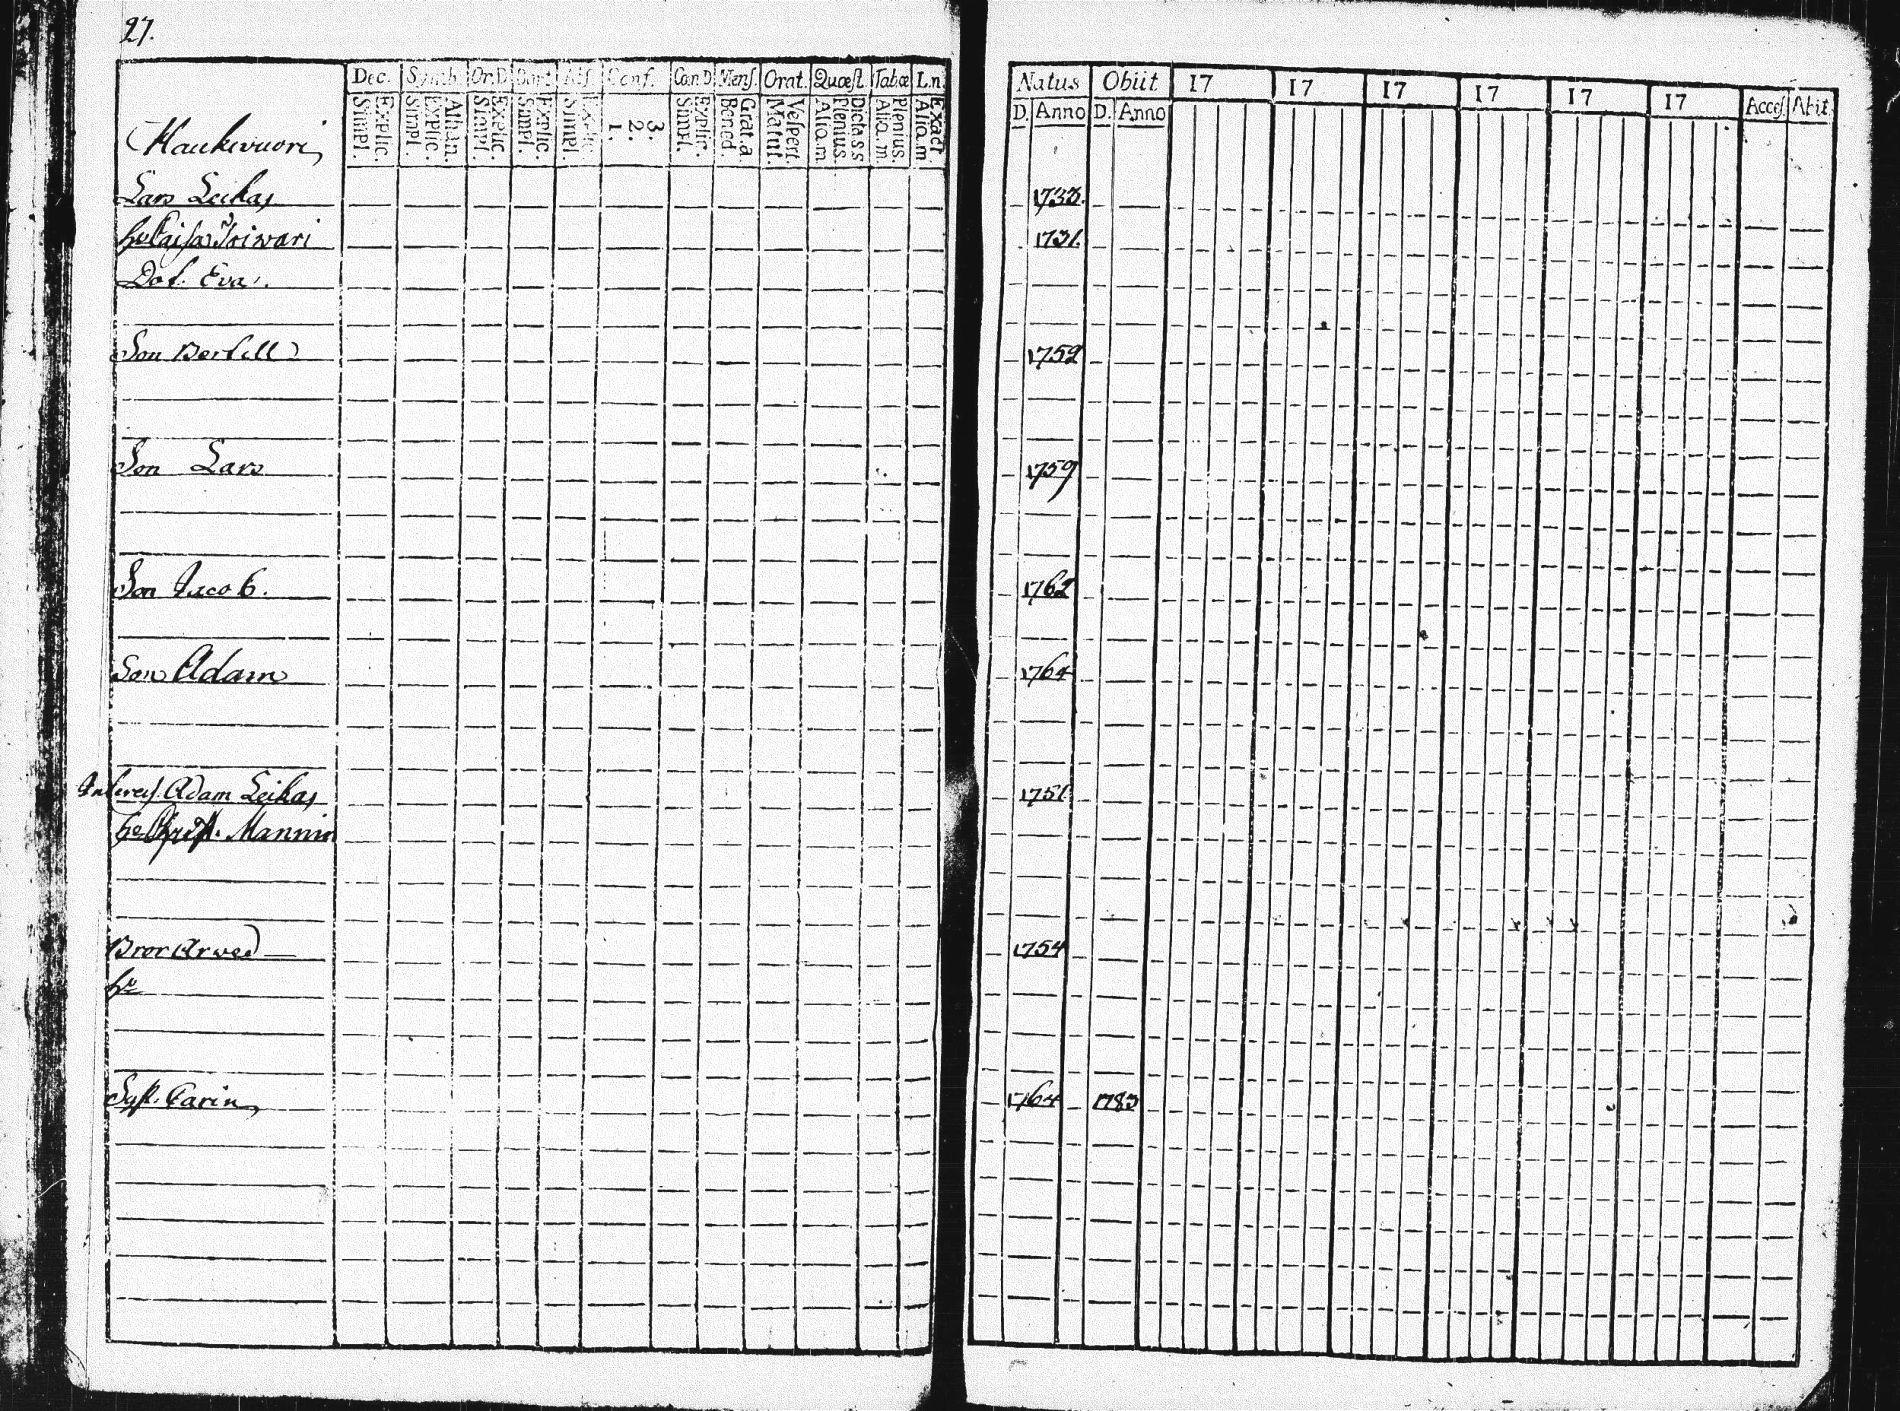 27.
Dec. Symb. Or.D. Conf. Can.D. Mens. Orat. Quæst. Tabæ L.n.
Simpl. Explic. Simpl. Explic. Athan. Simpl. Explic. Simpl. Explic. Simpl. Explic. 1. 2. 3. Simpl. Explic. Bened. Grat.a Matut. Vespert. Alio.m. Plenius. Dicta.s.s Alio.m. Plenius. Alio.m Exact
Natus Obiit 17 17 17 17 17 17 Acces. Abit.
D. Anno D. Anno
Haukivuori
Lars Leikas 1733.
hu Caisa Toiwari 1731.
Dot. Eva.
Son Bertill 1752
Son Lars 1759
Son Jacob. 1762
Son Adam 1764
Adam Leikas 1751
hu Christ. Mannin
Bror Arwed 1754
hu
Syst. Carin 1764 1783